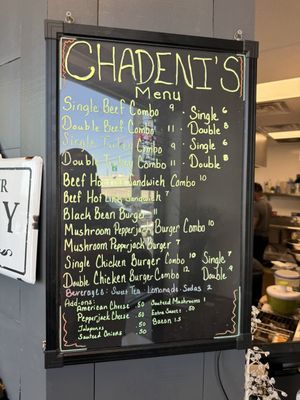 CHADENI'S
Menu
Single Beef Combo 9 · Single 6
Double Beef Combo 11 · Double 8
Single Turkey Combo 9 · Single 6
Double Turkey Combo 11 · Double 8
Beef Hot Link Sandwich Combo 10
Beef Hot Link Sandwich 7
Black Bean Burger 11
Mushroom Pepperjack Burger Combo 10
Mushroom Pepperjack Burger 7
Single Chicken Burger Combo 10 Single 7
Double Chicken Burger Combo 12 Double 9
Beverages: Swee Tea · Lemonade · Sodas 2
Add-ons:
American Cheese .50 Sauteed Mushrooms 1
Pepperjack Cheese .50 Extra Sauce .50
Jalapenos .50 Bacon 1.5
Sauteed Onions .50
Y